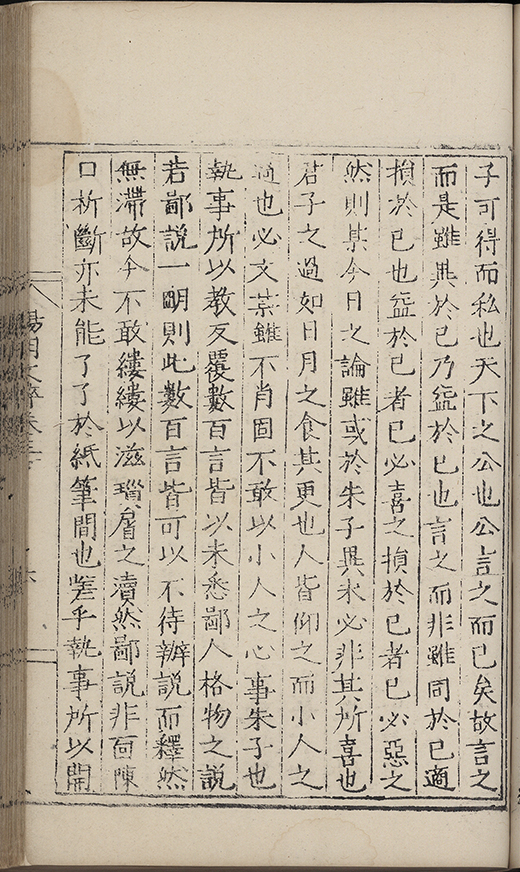 子可得而私也天下之公也公言之而已矣故言之
而是雖異於已乃益於已也言之而非雖同於已適
損於已也益於已者已必喜之損於已者已必惡之
然則某今日之論雖或於朱子異未必非其所喜也
君子之過如日月之食其更也人皆仰之而小人之
過也必文某雖不肖固不敢以小人之心事朱子也
執事所以教反覆數百言皆以未悉鄙人格物之説
若鄙説一明則此數百言皆可以不待辯説而釋然
無滯故今不敢縷縷以滋瑣屑之瀆然鄙説非面陳
口析斷亦未能了了於紙筆間也嗟乎執事所以開
陽明文粹卷